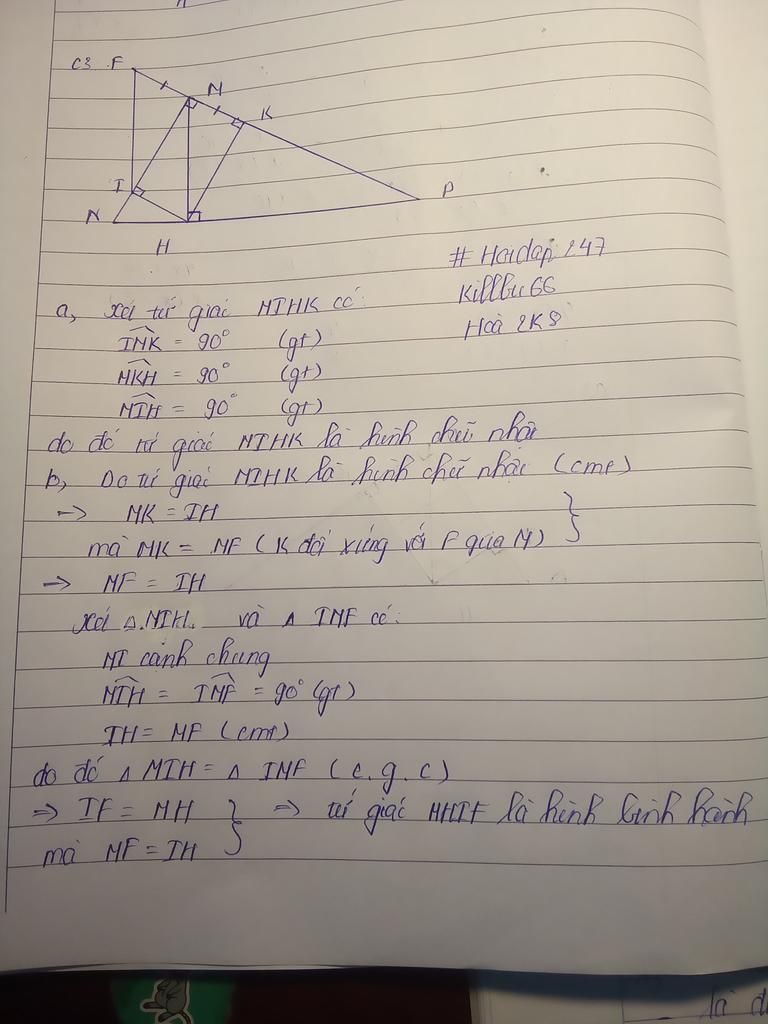 C3 F
M
K
I
P
N
H
# Hoidap 247
Killbu66
Hoà 2K8
a, Xét tứ giác MIHK có:
IMK = 90° (gt)
MKH = 90° (gt)
MIH = 90° (gt)
do đó tứ giác MIHK là hình chữ nhật
b, Do tứ giác MIHK là hình chữ nhật (cmt)
-> MK = IH
mà MK = MF (K đối xứng với F qua M) }
-> MF = IH
Xét △MIH. và △ IMF có:
MI cạnh chung
MIH = IMF = 90° (gt)
IH = MF (cmt)
do đó △ MIH = △ IMF (c.g.c)
=> IF = MH } => tứ giác MHIF là hình bình hành
mà MF = IH
là đ